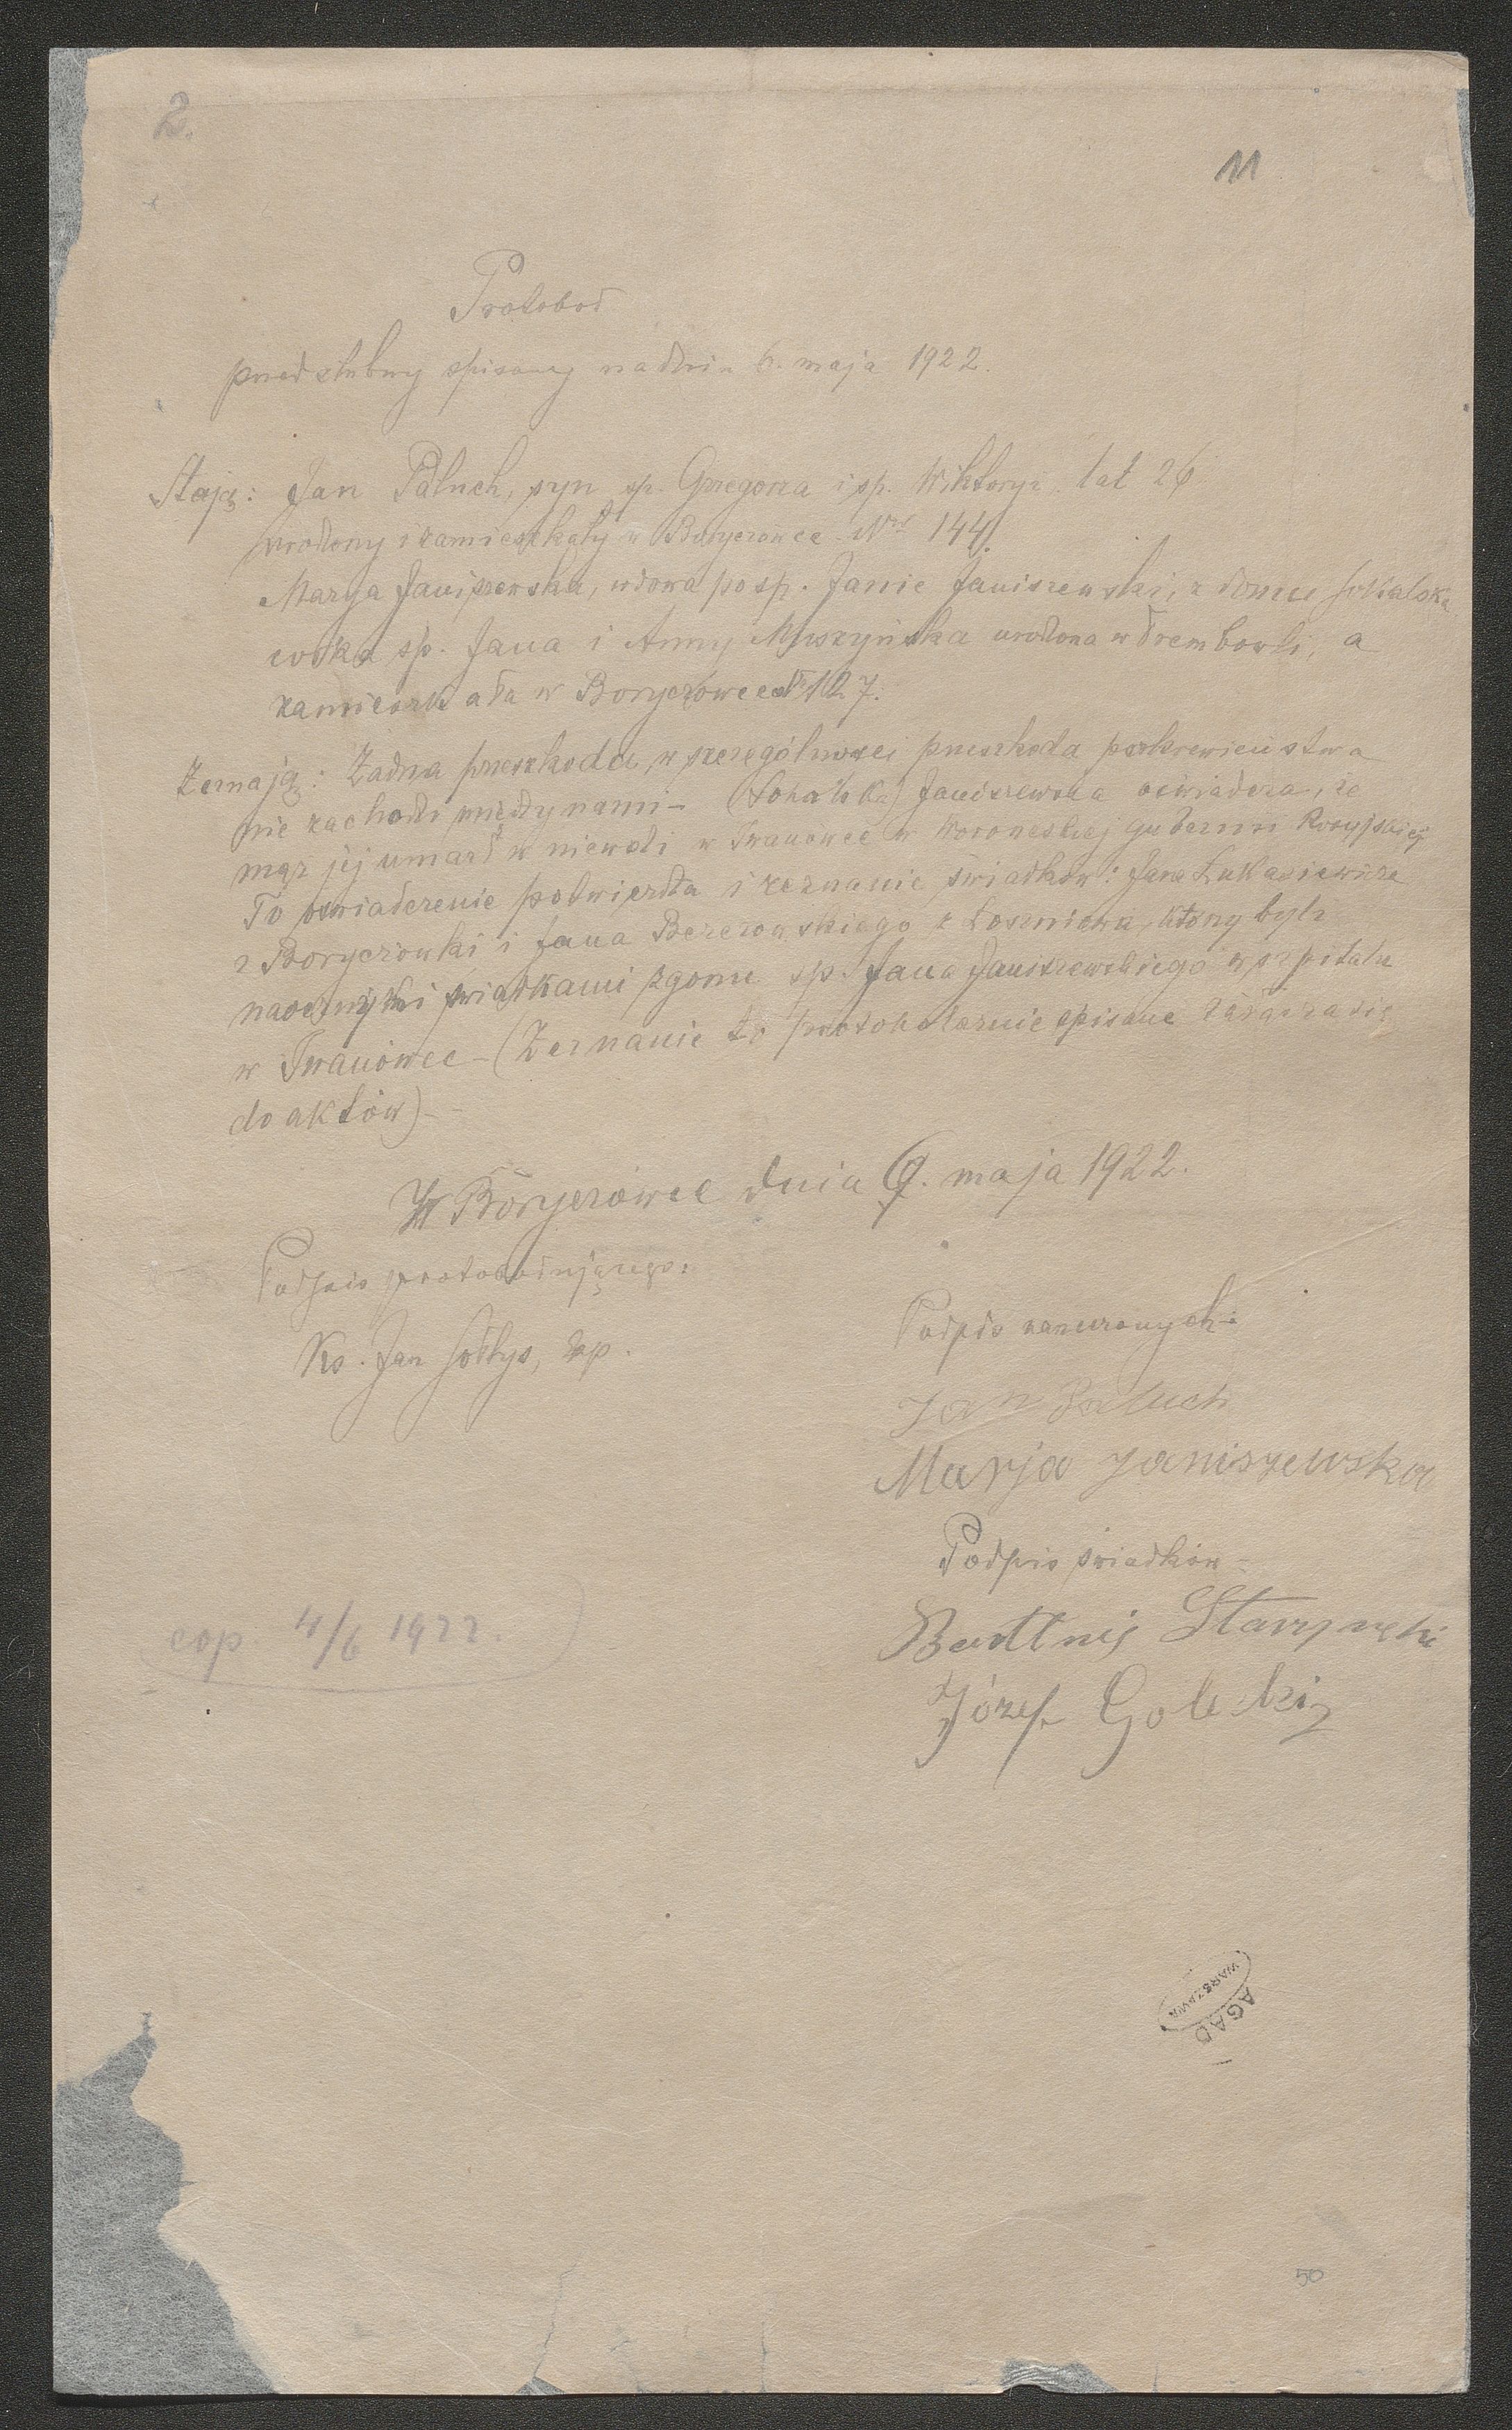 2.
11
Protokoł
przedślubny spisany na dniu 6. maja 1922.
Stają: Jan Paluch, syn śp. Grzegorza i śp. Wiktoryi lat 26
urodzony i zamieszkały w Boryczówce Nro 144.
Marya Janiszewska, wdowa po śp. Janie Janiszewski, z domu Sokalska
córka śp. Jana i Anny Muszyńska urodzona w Trembowli, a
zamieszkała w Boryczówce Nr 127.
Zeznają: Żadna przeszkoda, w szczególności przeszkoda pokrewieństwa
nie zachodzi między nami – (Sokalska) Janiszewska oświadcza, że
mąż jej umarł w niewoli w Iwanowce w Woroneskiej gubernii Rosyjskiej
To oświadczenie potwierdza i zeznanie świadków: Jana Łukasiewicza
z Boryczówki i Jana Berezowskiego z Łoszniowa, którzy byli
naocznymi świadkami zgonu śp. Jana Janiszewskiego w szpitalu
w Iwanówce – (Zeznanie to protokolarnie spisane załącza się
do aktów) –
W Boryczówce dnia 6. maja 1922.
Podpis protokołującego:
Ks. Jan Sołtys, exp.
Podpis narzeczonych:
Jan Paluch
Marja Janiszewska
Podpis świadków –
Starzyński
Józef Golecki
cop. 4/6 1922.
AGAD
WARSZAWA
50